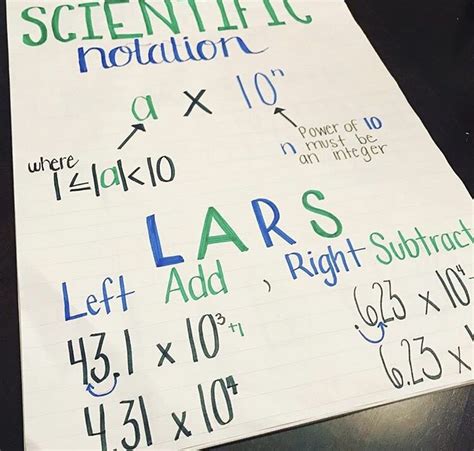 SCIENTIFIC
notation
a x 10ⁿ
where
1≤|a|<10
Power of 10
n must be
an integer
LARS
Left Add, Right Subtract
43.1 x 10³⁺¹
.623 x 10⁴
4.31 x 10⁴
6.23 x